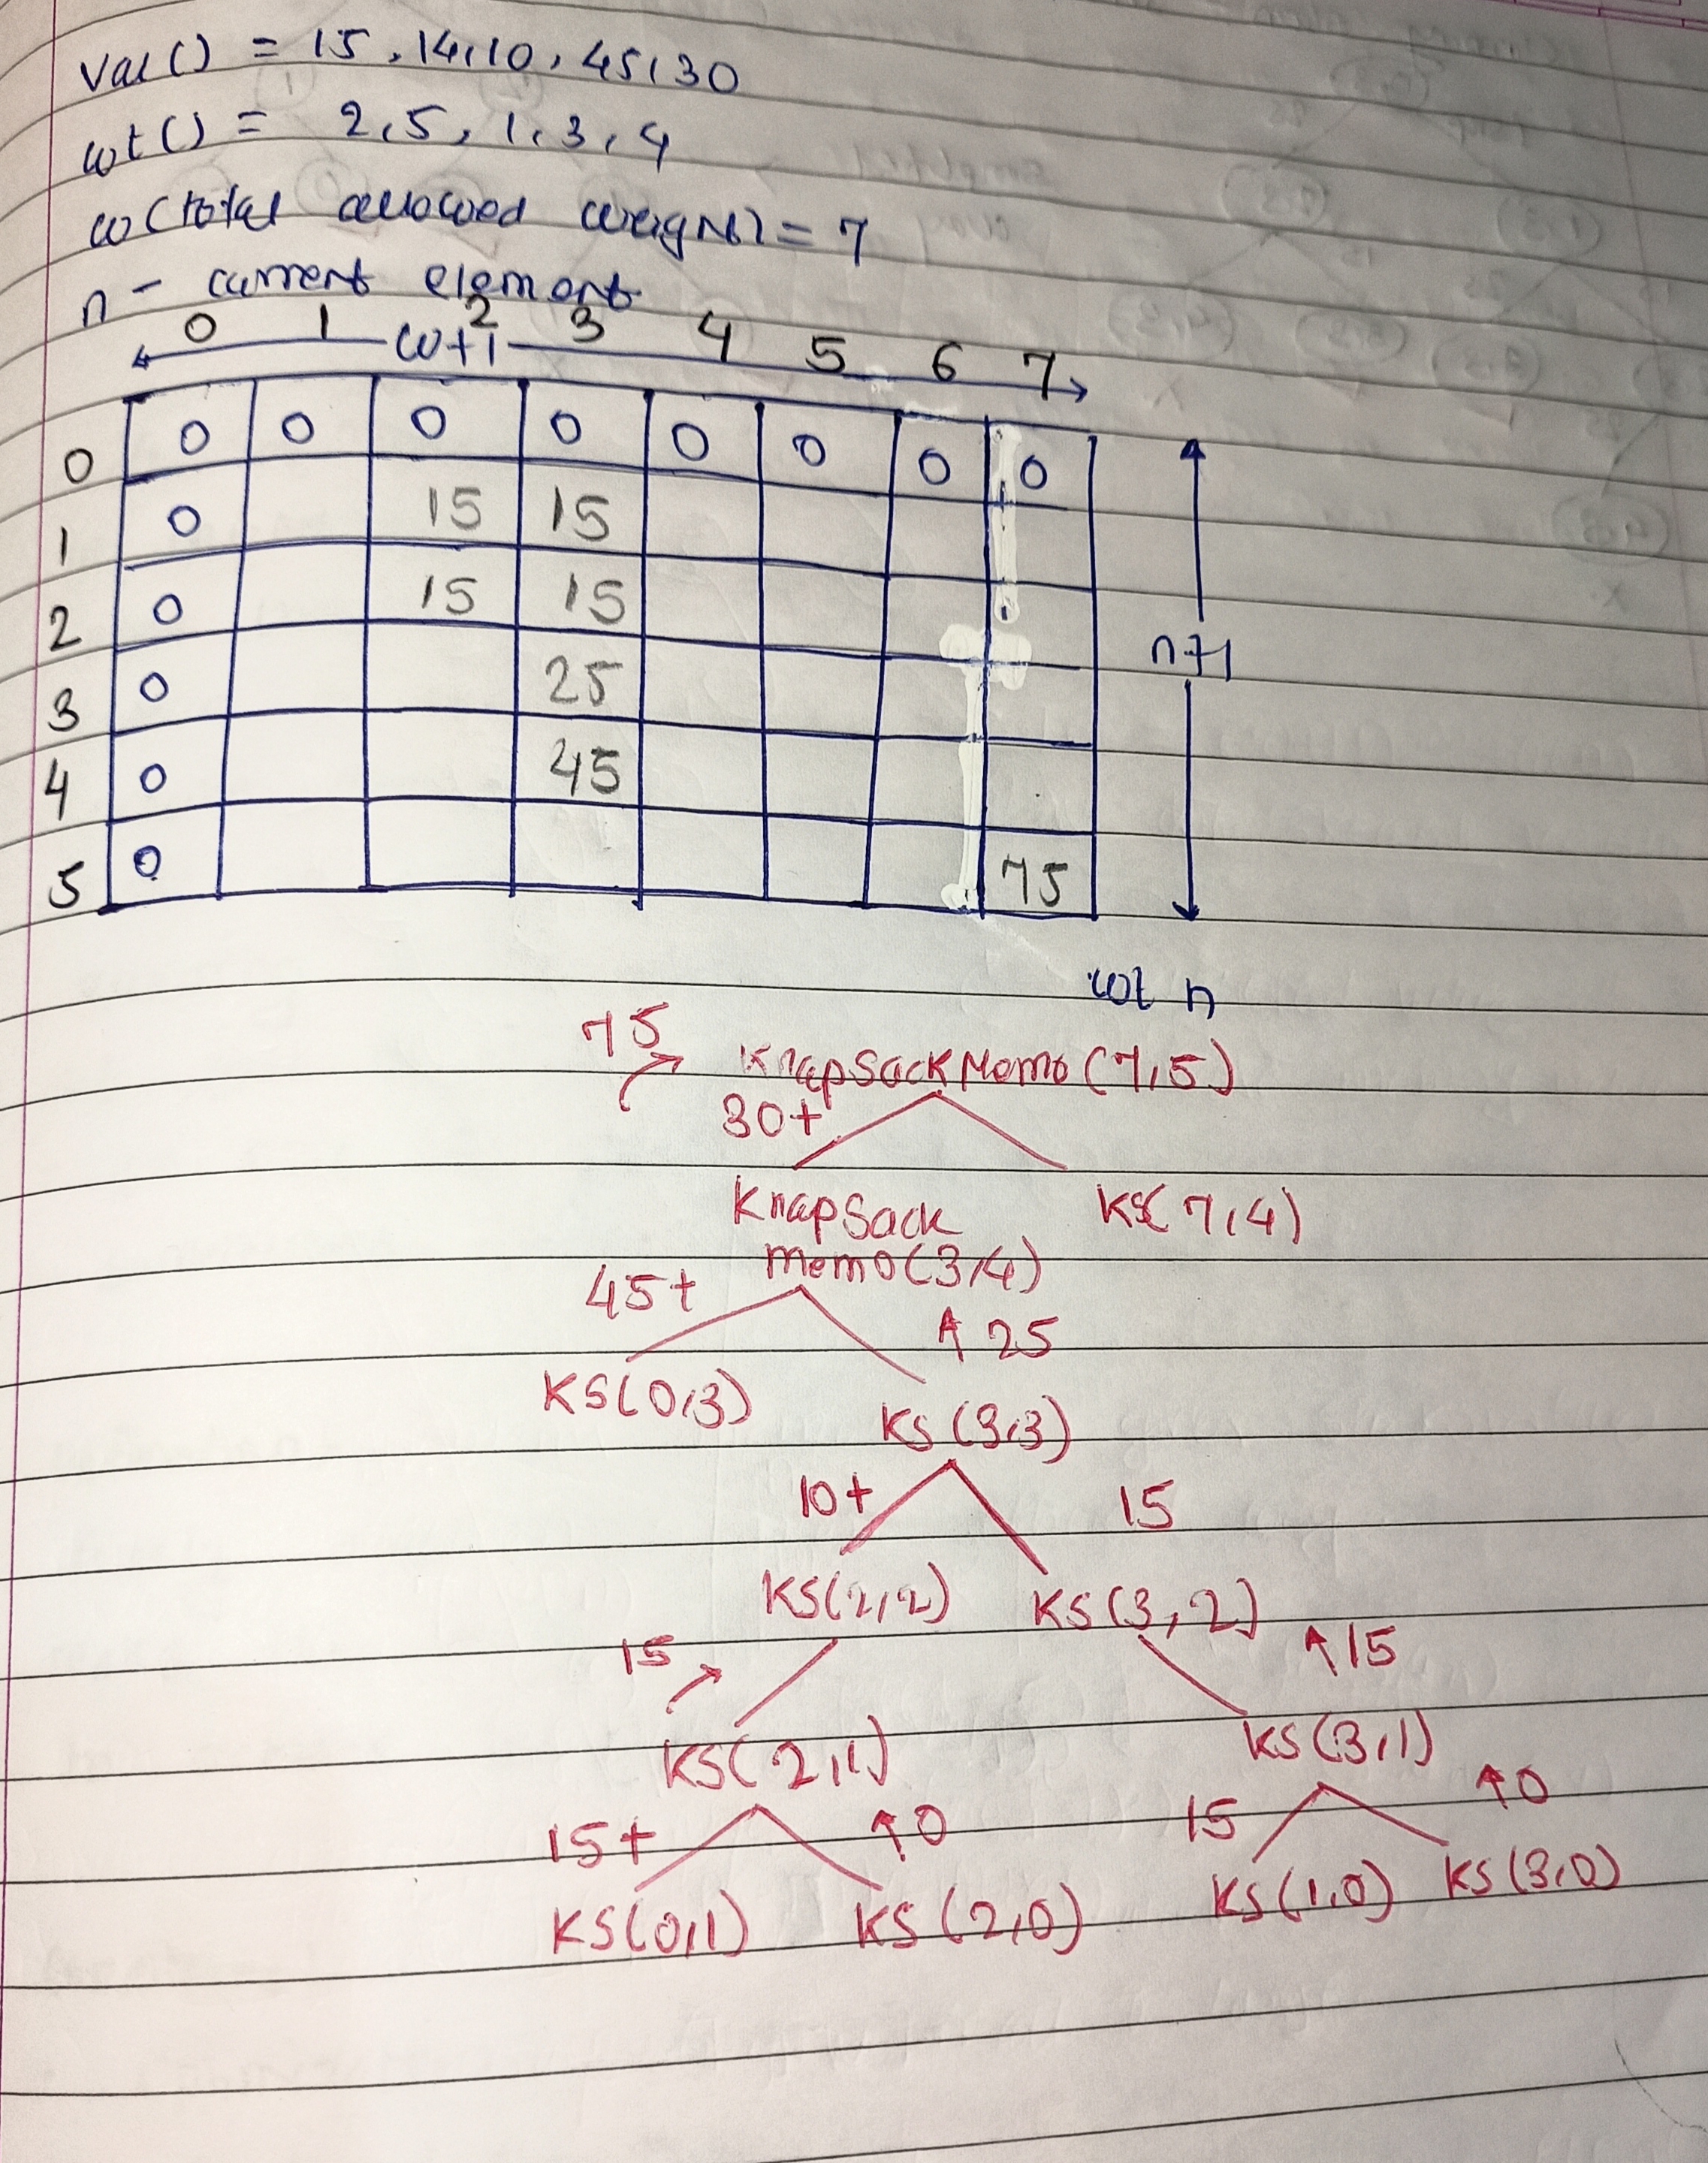 val() = 15, 14, 10, 45, 30
wt() = 2, 5, 1, 3, 4
w(total allowed weight) = 7
n - current element
0 1 2 3 4 5 6 7
w+1
0 0 0 0 0 0 0 0 0
1 0 15 15
2 0 15 15
n+1
3 0 25
4 0 45
5 0 75
wt n
75
KnapSackMemo (7,5)
30+
KnapSack KS( 7,4)
memo(3,4)
45+
↑ 25
KS(0,3)
KS (3,3)
10+ 15
KS(2,2) KS (3, 2)
15 ↑15
KS( 2,1) KS (3,1)
15+ ↑0 15 ↑0
KS(0,1) KS (2,0) KS (1,0) KS (3,0)